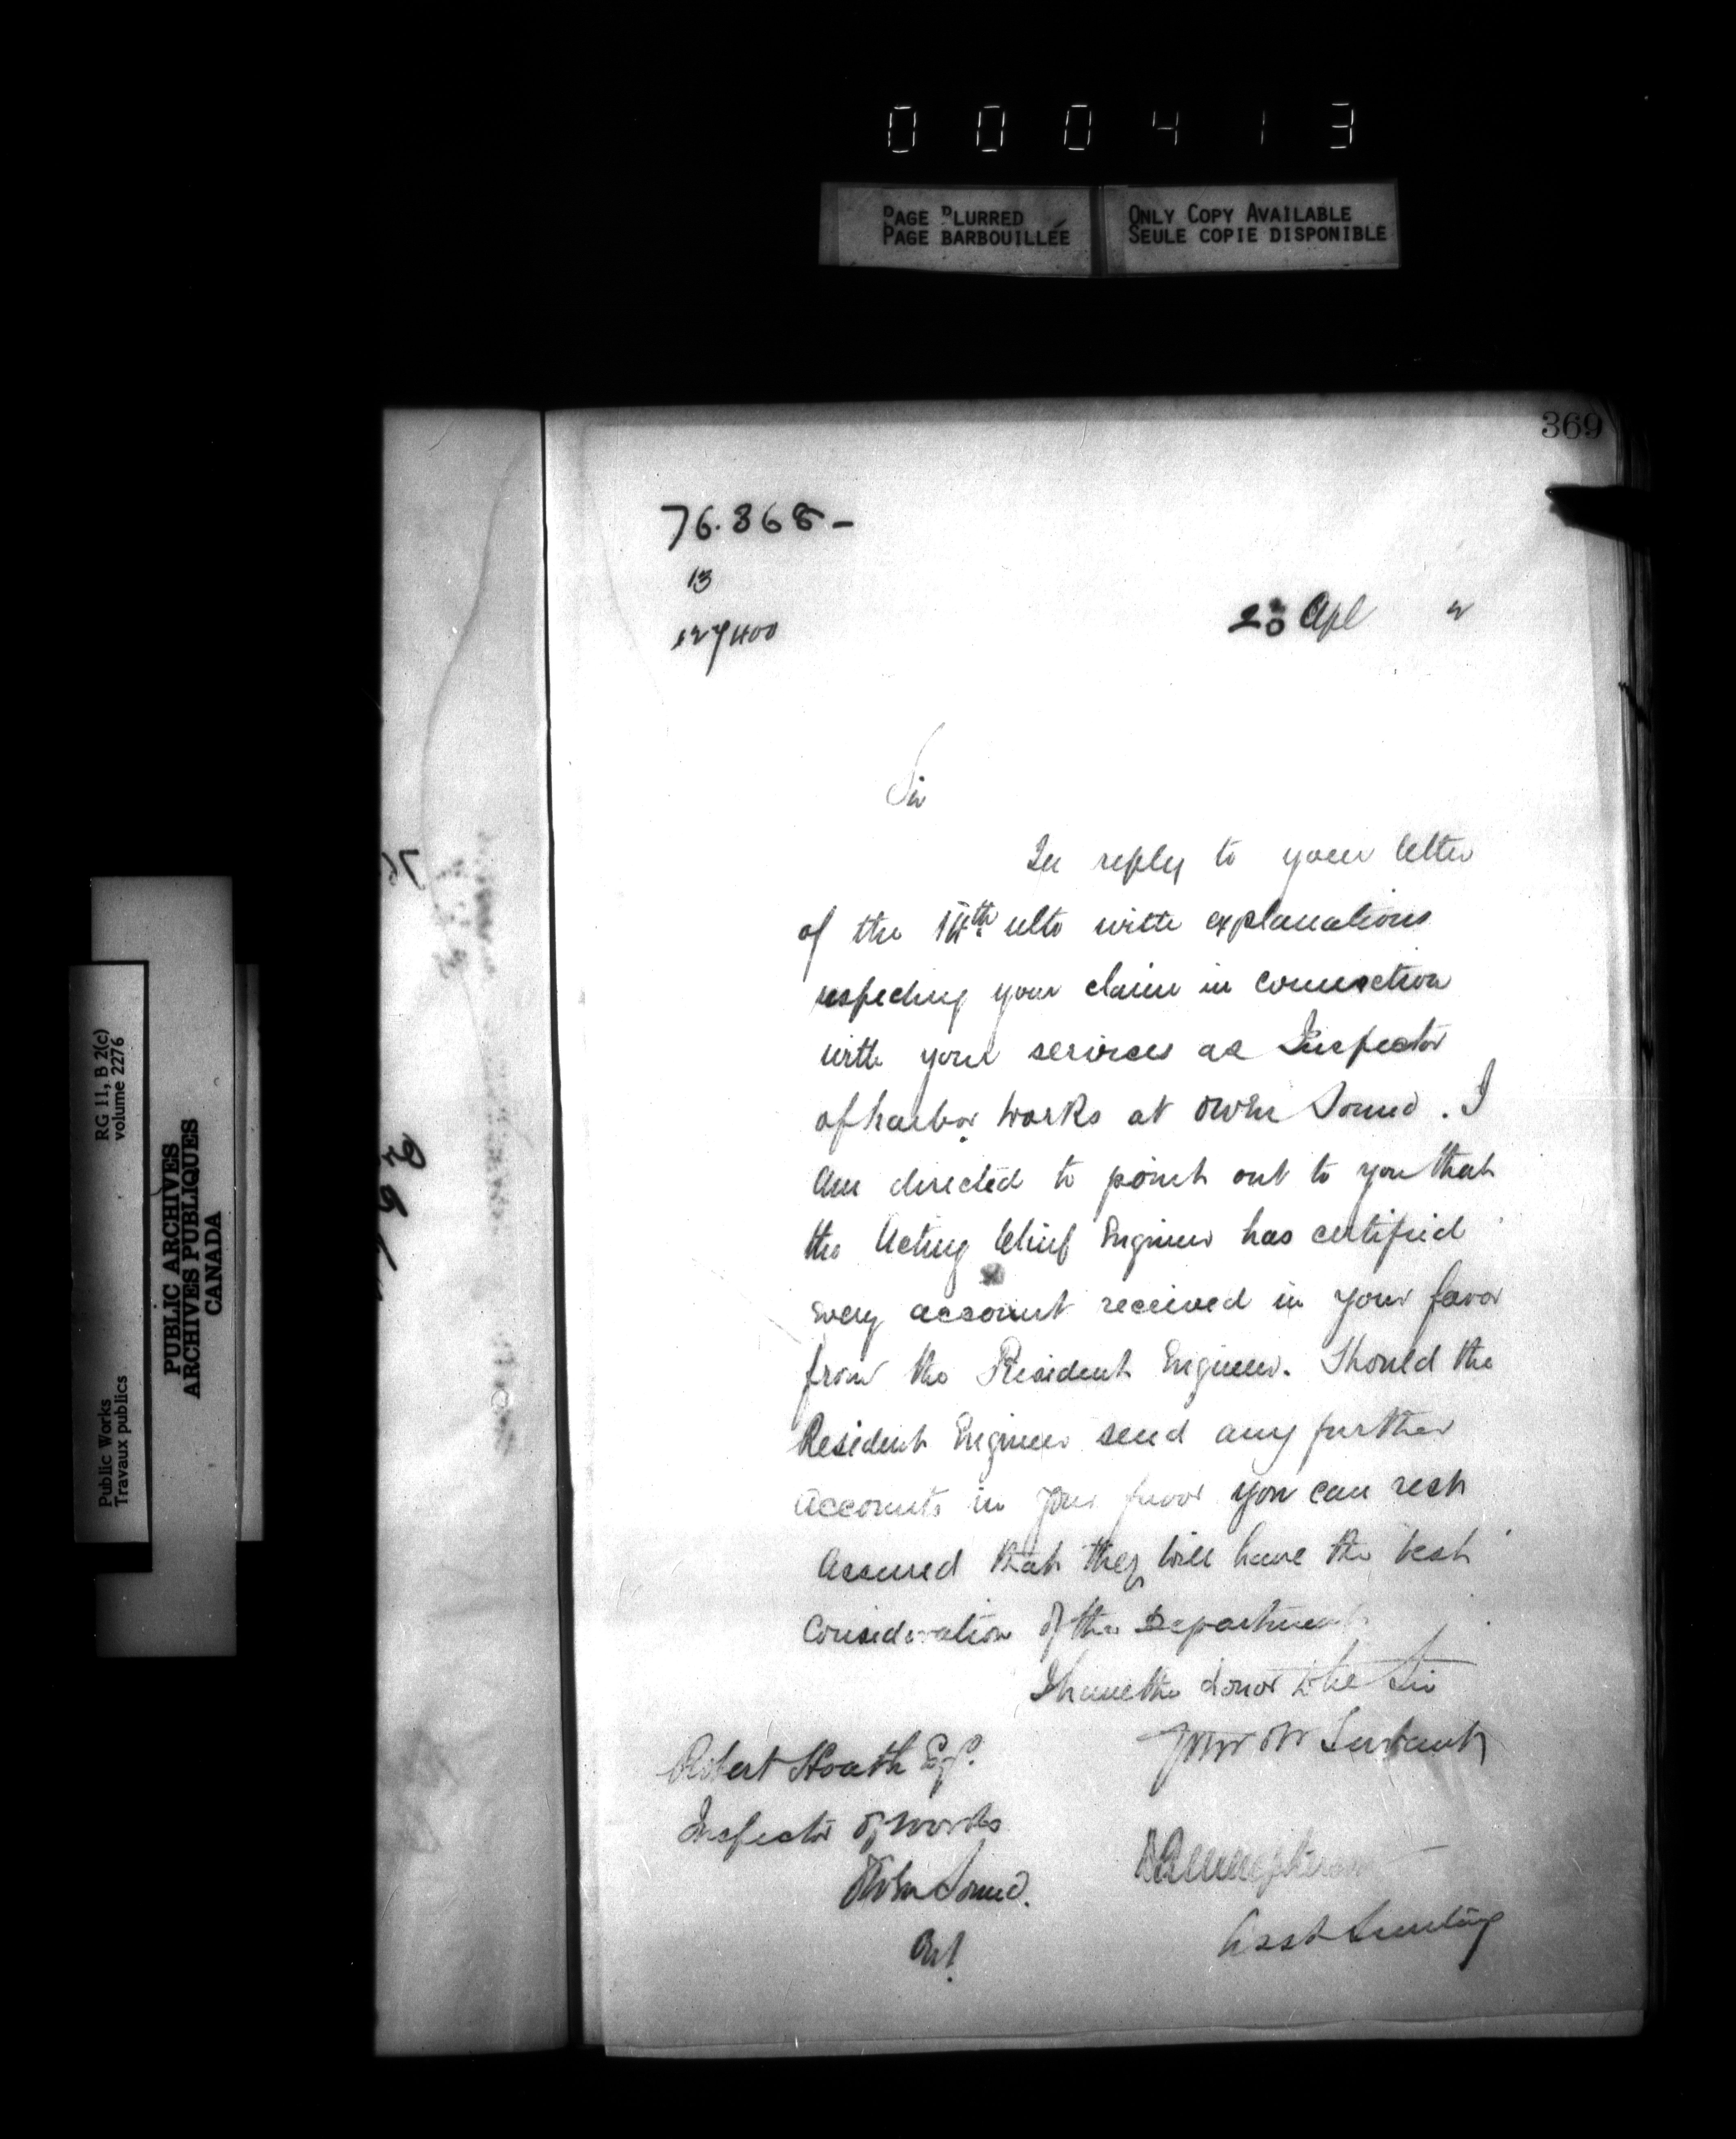 000413
PAGE BLURRED
PAGE BARBOUILLÉE
ONLY COPY AVAILABLE
SEULE COPIE DISPONIBLE
369
76.868-
13
127400
Apl 2
Sir
In reply to your letter
of the 14th ulto with explanations
respecting your claim in connection
with your services as Inspector
of harbor works at Owen Sound. I
am directed to point out to you that
the Acting Chief Engineer has certified
every account received in your favor
from the Resident Engineer. Should the
Resident Engineer send any further
accounts in your favor you can rest
assured that they will have the best
consideration of the Department
I have the honor to be Sir
Your Ob Servant
Robert Heath Esq.
Inspector of works
Owen Sound.
Ont.
Asst Secretary
Public Works
Travaux publics
RG 11, B 2(c)
volume 2276
PUBLIC ARCHIVES
ARCHIVES PUBLIQUES
CANADA